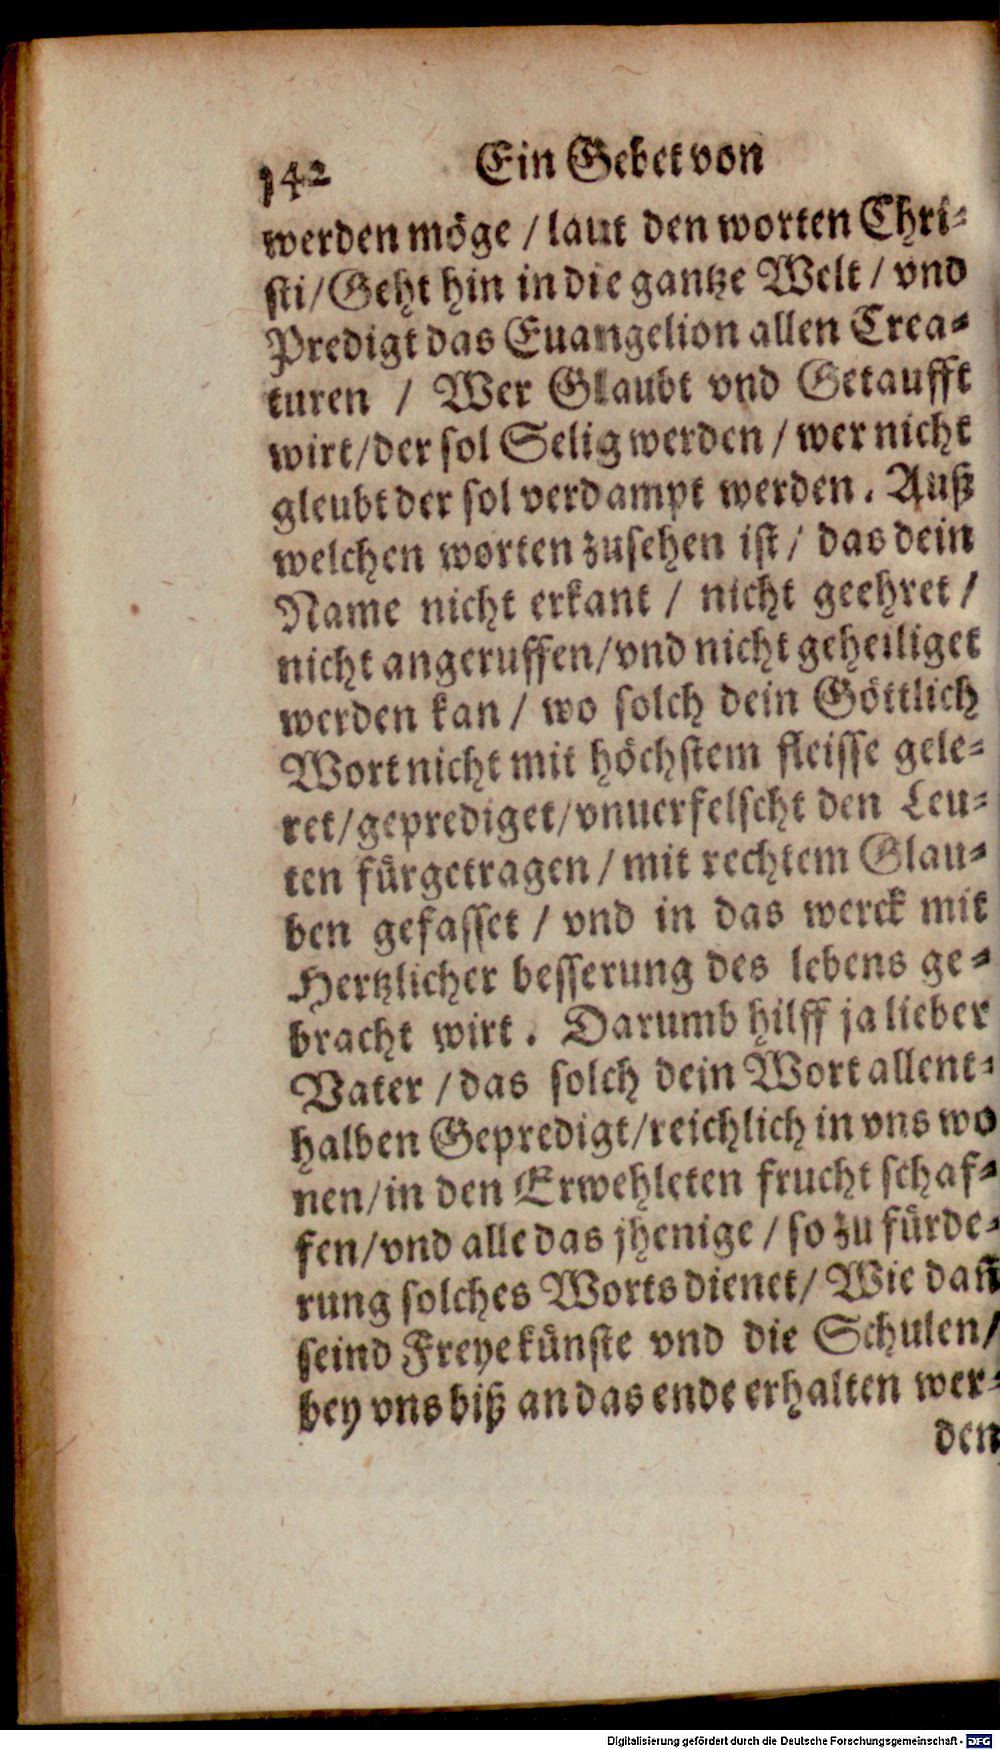 142 Ein Gebet von
werden möge / laut den worten Chri-
sti/Geht hin in die gantze Welt / vnd
Predigt das Euangelion allen Crea-
turen / Wer Glaubt vnd Getaufft
wirt/der sol Selig werden / wer nicht
gleubt der sol verdampt werden. Auß
welchen worten zusehen ist / das dein
Name nicht erkant / nicht geehret /
nicht angeruffen/vnd nicht geheiliget
werden kan / wo solch dein Göttlich
Wort nicht mit höchstem fleisse gele-
ret/geprediget/vnuerfelscht den Leu-
ten fürgetragen / mit rechtem Glau-
ben gefasset / vnd in das werck mit
Hertzlicher besserung des lebens ge-
bracht wirt. Darumb hilff ja lieber
Vater / das solch dein Wort allent-
halben Gepredigt/reichlich in vns wo
nen/in den Erwehleten frucht schaf-
fen/vnd alle das jhenige / so zu fürde-
rung solches Worts dienet/ Wie dañ
seind Freye künste vnd die Schulen/
bey vns biß an das ende erhalten wer-
den
Digitalisierung gefördert durch die Deutsche Forschungsgemeinschaft - DFG